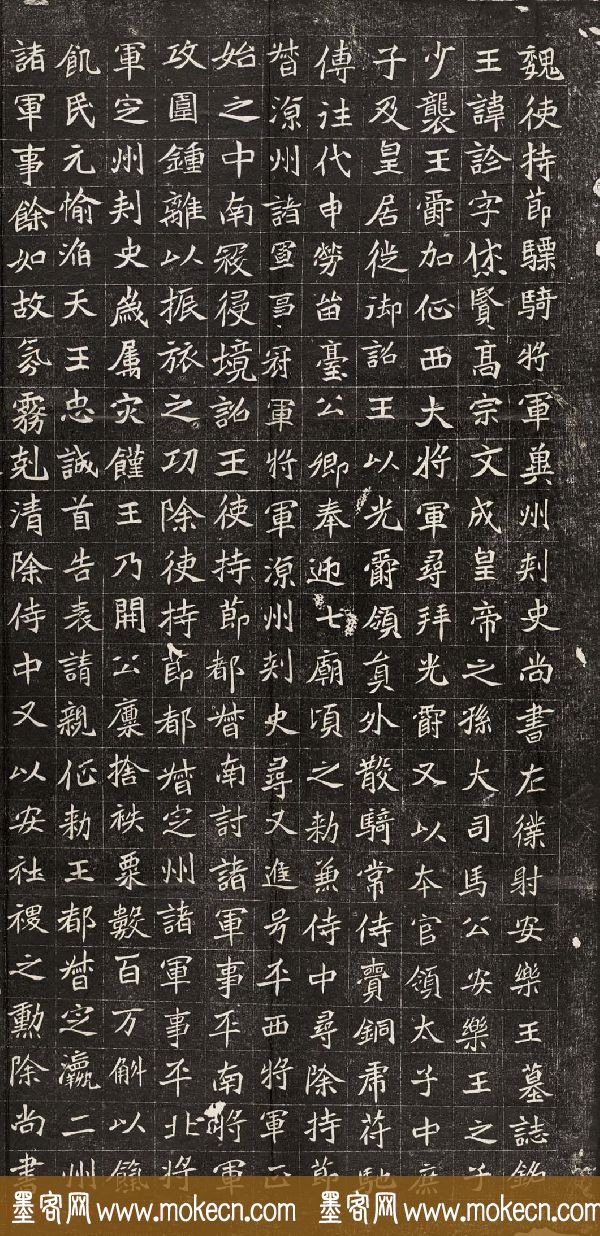 魏使持節驃騎將軍冀州刾史尚書左僕射安樂王墓誌銘
王諱詮字休賢高宗文成皇帝之孫大司馬公安樂王之子
少襲王爵加征西大將軍尋拜光爵又以本官領太子中庶
子及皇居徙御詔王以光爵領員外散騎常侍賷銅虎苻馳
傳往代申勞留臺公卿奉迎七廟頃之勑兼侍中尋除持節
督涼州諸軍事冠軍將軍涼州刾史尋又進号平西將軍正
始之中南寇侵境詔王使持節都督南討諸軍事平南將軍
攻圍鍾離以振旅之功除使持節都督定州諸軍事平北將
軍定州刾史歲屬灾饉王乃開公廩捨秩粟數百万斛以餼
飢民元愉滔天王忠誠首告表請親征勑王都督定瀛二州
諸軍事餘如故氛霧剋清除侍中又以安社稷之勳除尚書
墨客网 www.mokecn.com 墨客网 www.mokecn.com